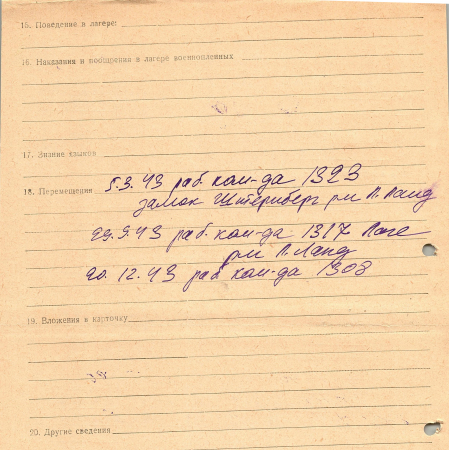 15. Поведение в лагере:
16. Наказания и поощрения в лагере военнопленных
17. Знание языков
18. Перемещения 5.3.43 раб. ком-да 1323
замок Штернберг рм Л. Ланд
29.9.43 раб. ком-да 1317 Лаге
рм Л. Ланд
20.12.43 раб ком-да 1308
19. Вложения в карточку
20. Другие сведения